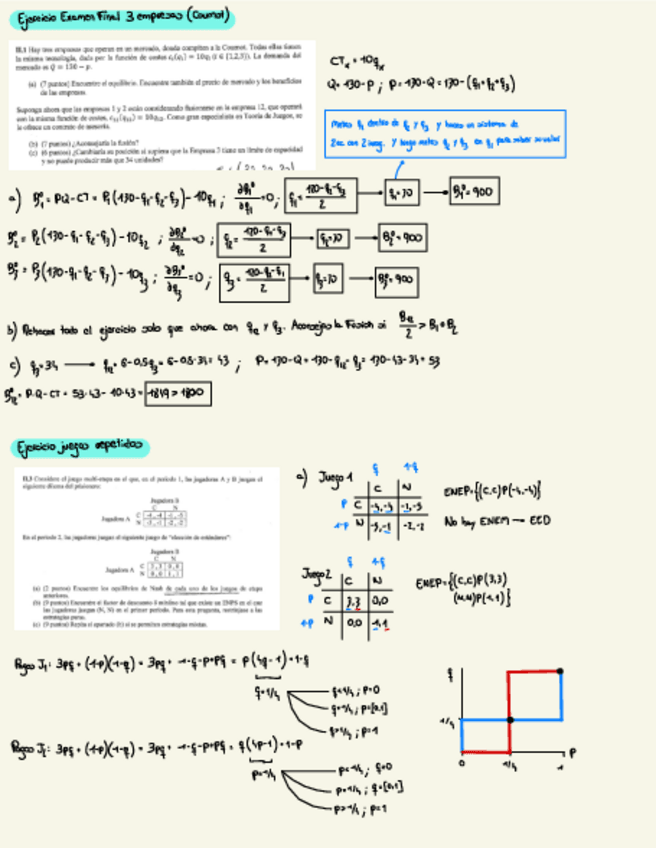 Ejercicio Examen Final 3 empresas (Cournot)
II.1 Hay tres empresas que operan en un mercado, donde compiten a la Cournot. Todas ellas tienen
la misma tecnología, dada por la función de costes c_i(q_i) = 10q_i (i ∈ {1,2,3}). La demanda del
mercado es Q = 130 − p.
(a) (7 puntos) Encuentre el equilibrio. Encuentre también el precio de mercado y los beneficios
de las empresas.
Suponga ahora que las empresas 1 y 2 están considerando fusionarse en la empresa 12, que operará
con la misma función de costes, c₁₂(q₁₂) = 10q₁₂. Como gran especialista en Teoría de Juegos, se
le ofrece un contrato de asesoría.
(b) (7 puntos) ¿Aconsejaría la fusión?
(c) (6 puntos) ¿Cambiaría su posición si supiera que la Empresa 3 tiene un límite de capacidad
y no puede producir más que 34 unidades?
CTx = 10qx
Q = 130 - P ; P = 130 - Q = 130 - (q1 + q2 + q3)
Metes q1 dentro de q2 y q3 y haces un sistema de
2 ec con 2 incog. Y luego metes q2 y q3 en q1 para saber su valor
a) B1º = PQ - CT = P1(130 - q1 - q2 - q3) - 10q1 ; ∂B1º/∂q1 = 0 ; q1 = (120 - q2 - q3)/2 → q1 = 30 → B1º = 900
B2º = P2(130 - q1 - q2 - q3) - 10q2 ; ∂B2º/∂q2 = 0 ; q2 = (120 - q1 - q3)/2 → q2 = 30 → B2º = 900
B3º = P3(130 - q1 - q2 - q3) - 10q3 ; ∂B3º/∂q3 = 0 ; q3 = (120 - q2 - q1)/2 → q3 = 30 → B3º = 900
b) Rehaces todo el ejercicio solo que ahora con q12 y q3. Aconsejas la Fusión si B12/2 > B1 + B2
c) q3 = 34 → q12 = 6 - 0,5q3 = 6 - 0,5·34 = 43 ; P = 130 - Q = 130 - q12 - q3 = 130 - 43 - 34 = 53
B12º = P·Q - CT = 53·43 - 10·43 = 1849 > 1800
Ejercicio juegos repetidos
II.3 Considere el juego multi-etapa en el que, en el periodo 1, los jugadores A y B juegan el
siguiente dilema del prisionero:
Jugadora B
C N
Jugadora A C -4,-4 -1,-5
N -5,-1 -2,-2
En el periodo 2, los jugadores juegan el siguiente juego de "elección de estándares":
Jugadora B
C N
Jugadora A C 3,3 0,0
N 0,0 1,1
(a) (2 puntos) Encuentre los equilibrios de Nash de cada uno de los juegos de etapa
anteriores.
(b) (9 puntos) Encuentre el factor de descuento δ mínimo tal que existe un ENPS en el que
las jugadoras juegan (N, N) en el primer periodo. Para esta pregunta, restrínjase a las
estrategias puras.
(c) (9 puntos) Repita el apartado (b) si se permiten estrategias mixtas.
a) Juego 1
q 1-q
C N
P C -4,-4 -1,-5
1-P N -5,-1 -2,-2
ENEP = {(C,C) P(-4,-4)}
No hay ENEM → EED
Juego 2
q 1-q
C N
P C 3,3 0,0
1-P N 0,0 1,1
ENEP = {(C,C) P(3,3)
(N,N) P(1,1)}
Pagos J1: 3pq + (1-p)(1-q) = 3pq + 1 - q - p + pq = p(4q - 1) + 1 - q
q = 1/4
q < 1/4 ; p = 0
q = 1/4 ; p = [0,1]
q > 1/4 ; p = 1
Pagos J2: 3pq + (1-p)(1-q) = 3pq + 1 - q - p + pq = q(4p - 1) + 1 - p
p = 1/4
p < 1/4 ; q = 0
p = 1/4 ; q = [0,1]
p > 1/4 ; p = 1
q
1/4
0 1/4 1 P